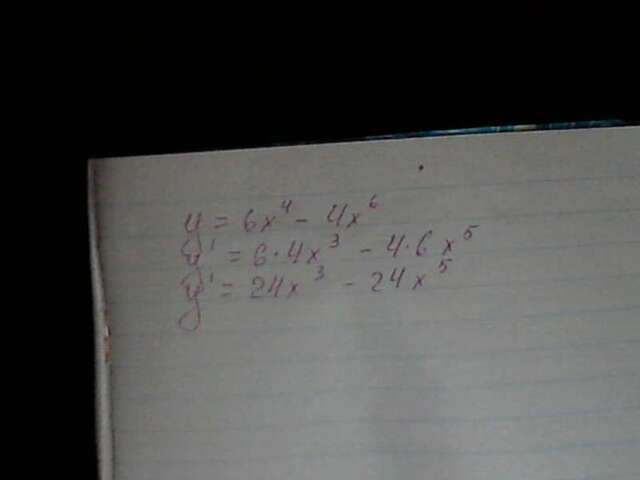 y = 6x⁴ - 4x⁶
y' = 6·4x³ - 4·6x⁵
y' = 24x³ - 24x⁵